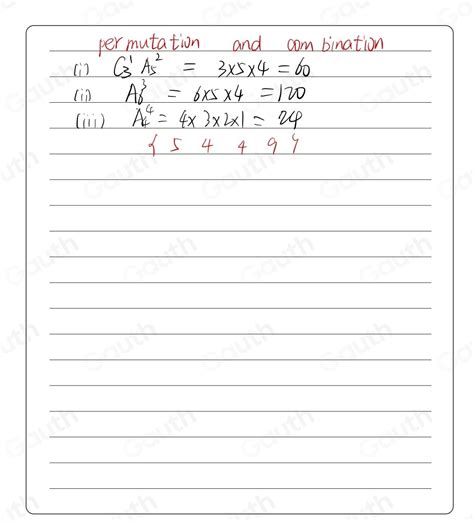 permutation and combination
(i) C₃¹ A₅² = 3×5×4 = 60
(ii) A₆³ = 6×5×4 = 120
(iii) A₄⁴ = 4×3×2×1 = 24
{ 5 4 4 9 }
Gauth